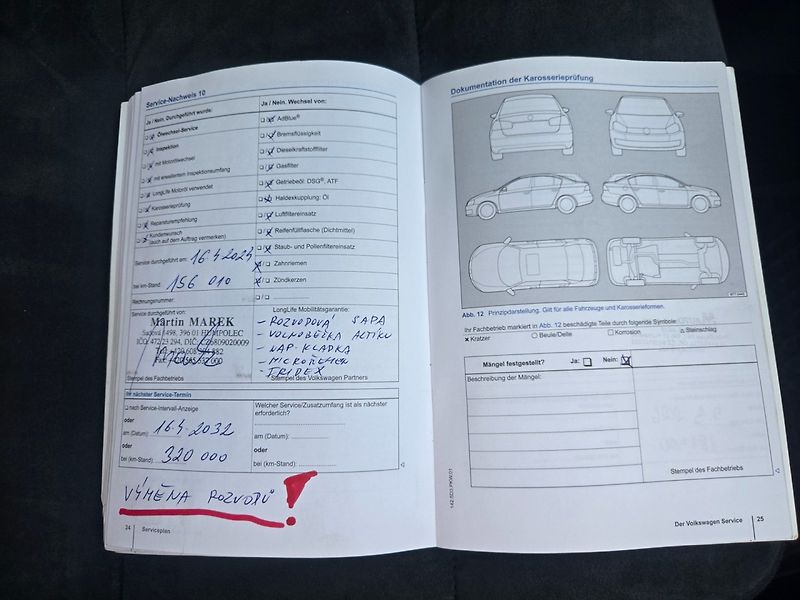 Service-Nachweis 10
Ja / Nein. Durchgeführt wurde:
Ja / Nein. Wechsel von:
Ölwechsel-Service
AdBlue®
Inspektion
Bremsflüssigkeit
mit Motorölwechsel
Dieselkraftstofffilter
mit erweitertem Inspektionsumfang
Gasfilter
LongLife Motoröl verwendet
Getriebeöl: DSG®, ATF
Karosserieprüfung
Haldexkupplung: Öl
Reparaturempfehlung
Luftfiltereinsatz
Kundenwunsch
(auch auf dem Auftrag vermerken)
Reifenfüllflasche (Dichtmittel)
Staub- und Pollenfiltereinsatz
Service durchgeführt am: 16.4.2024
Zahnriemen
bei km-Stand: 156 010
Zündkerzen
Rechnungsnummer:
Service durchgeführt von:
LongLife Mobilitätsgarantie:
Martin MAREK
Sadová 1498, 396 01 HUMPOLEC
IČO: 472/23 294, DIČ: CZ6809020009
- ROZVODOVÁ SADA
- VOLNOBĚŽKA ALTIKU
- NAP. KLADKA
- MICROŘEMEN
- TRIDEX
Stempel des Fachbetriebs
Stempel des Volkswagen Partners
Ihr nächster Service-Termin
nach Service-Intervall-Anzeige
Welcher Service/Zusatzumfang ist als nächster
erforderlich?
oder
am (Datum): 16.4.2032
am (Datum):
oder
oder
bei (km-Stand): 320 000
bei (km-Stand):
VÝMĚNA ROZVODŮ !
24 Serviceplan
Dokumentation der Karosserieprüfung
Abb. 12 Prinzipdarstellung. Gilt für alle Fahrzeuge und Karosserieformen.
Ihr Fachbetrieb markiert in Abb. 12 beschädigte Teile durch folgende Symbole:
x Kratzer
Beule/Delle
Korrosion
Steinschlag
Mängel festgestellt? Ja: Nein:
Beschreibung der Mängel:
Stempel des Fachbetriebs
Der Volkswagen Service 25